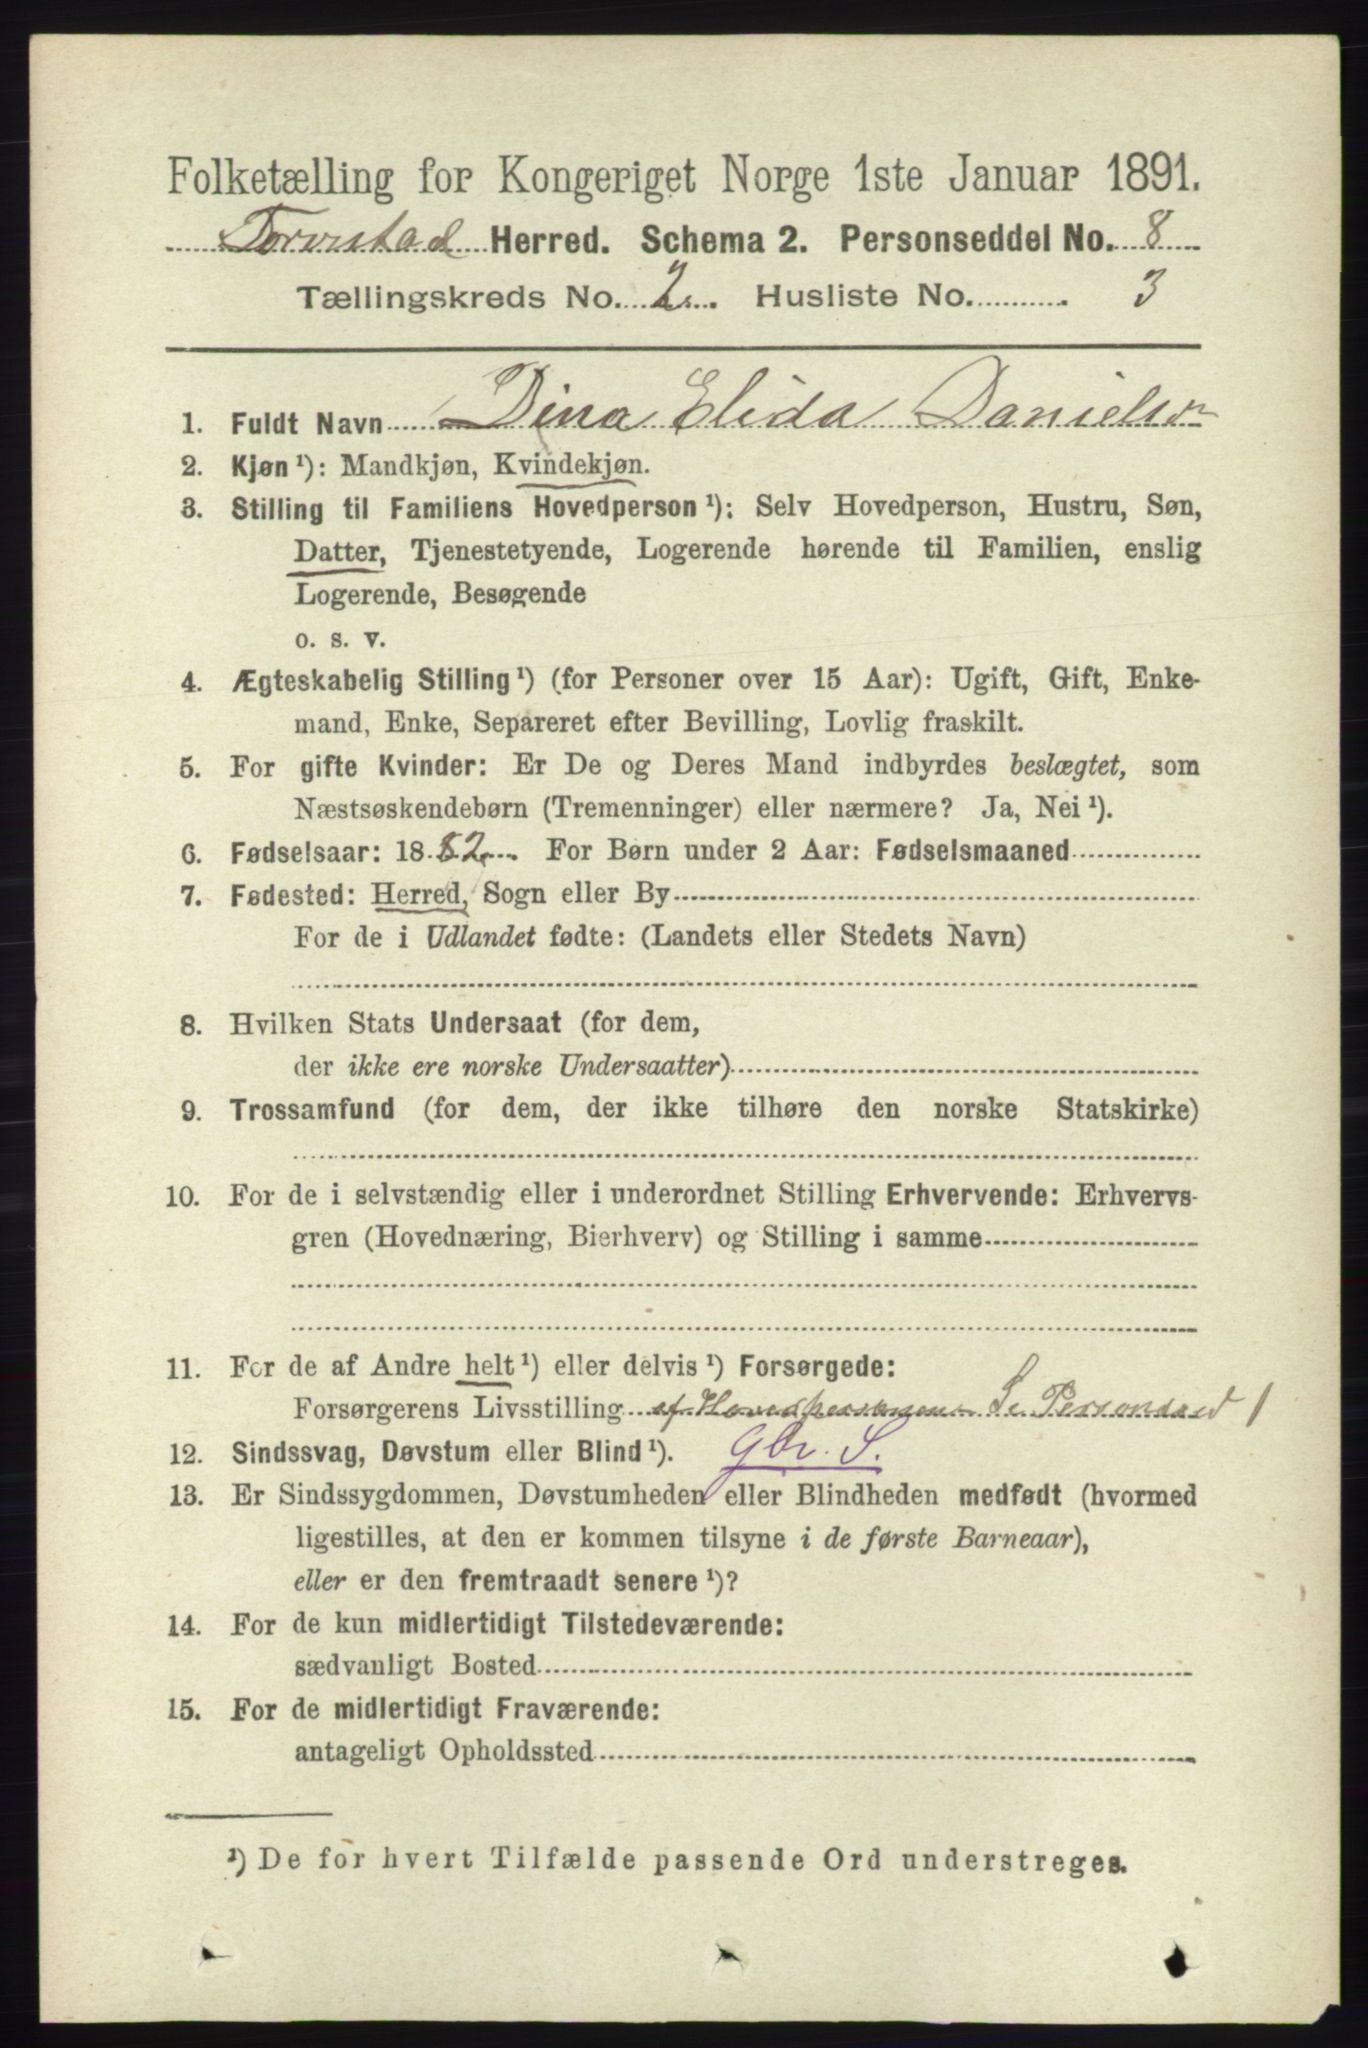 Folketælling for Kongeriget Norge 1ste Januar 1891.
Torvestad Herred. Schema 2. Personseddel No. 8
Tællingskreds No. 2. Husliste No. 3
1. Fuldt Navn Dina Elida Danielsen
2. Kjøn ¹): Mandkjøn, Kvindekjøn.
3. Stilling til Familiens Hovedperson ¹): Selv Hovedperson, Hustru, Søn,
Datter, Tjenestetyende, Logerende hørende til Familien, enslig
Logerende, Besøgende
o. s. v.
4. Ægteskabelig Stilling ¹) (for Personer over 15 Aar): Ugift, Gift, Enke-
mand, Enke, Separeret efter Bevilling, Lovlig fraskilt.
5. For gifte Kvinder: Er De og Deres Mand indbyrdes beslægtet, som
Næstsøskendebørn (Tremenninger) eller nærmere? Ja, Nei ¹).
6. Fødselsaar: 1882. For Børn under 2 Aar: Fødselsmaaned
7. Fødested: Herred, Sogn eller By
For de i Udlandet fødte: (Landets eller Stedets Navn)
8. Hvilken Stats Undersaat (for dem,
der ikke ere norske Undersaatter)
9. Trossamfund (for dem, der ikke tilhøre den norske Statskirke)
10. For de i selvstændig eller i underordnet Stilling Erhvervende: Erhvervs-
gren (Hovednæring, Bierhverv) og Stilling i samme
11. For de af Andre helt ¹) eller delvis ¹) Forsørgede:
Forsørgerens Livsstilling af Hovedpersonen Se Personsed 1
12. Sindssvag, Døvstum eller Blind ¹). Gbr. S.
13. Er Sindssygdommen, Døvstumheden eller Blindheden medfødt (hvormed
ligestilles, at den er kommen tilsyne i de første Barneaar),
eller er den fremtraadt senere ¹)?
14. For de kun midlertidigt Tilstedeværende:
sædvanligt Bosted
15. For de midlertidigt Fraværende:
antageligt Opholdssted
¹) De for hvert Tilfælde passende Ord understreges.